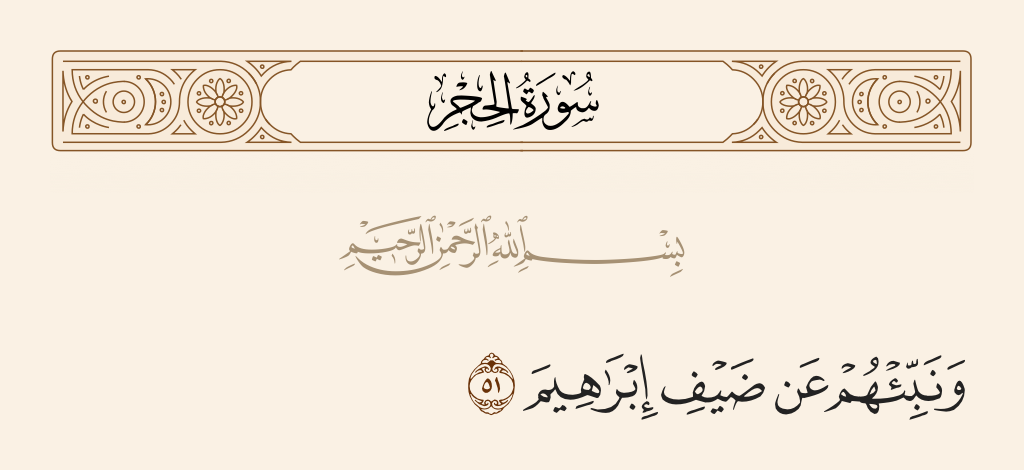 سُورَةُ الحِجْرِ
بِسْمِ ٱللَّهِ ٱلرَّحْمَٰنِ ٱلرَّحِيمِ
وَنَبِّئْهُمْ عَن ضَيْفِ إِبْرَٰهِيمَ ٥١